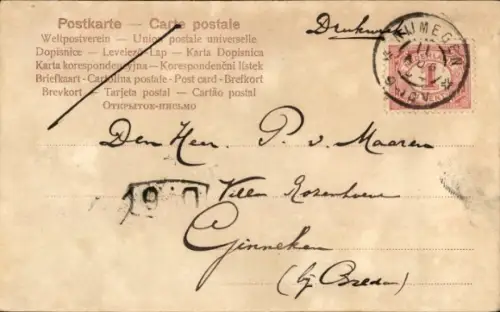 Postkarte – Carte postale
Weltpostverein – Union postale universelle
Dopisnice – Levelező Lap – Karta Dopisnica
Karta korespondencyjna – Korespondenční lístek
Briefkaart – Cartolina postale – Post card – Brefkort
Brevkort – Tarjeta postal – Cartão postal
ОТКРЫТОЕ-ПИСЬМО
NIJMEGEN
11
1
Den Heer P. v. Maaren
Villa
Ginneken
(bij Breda)